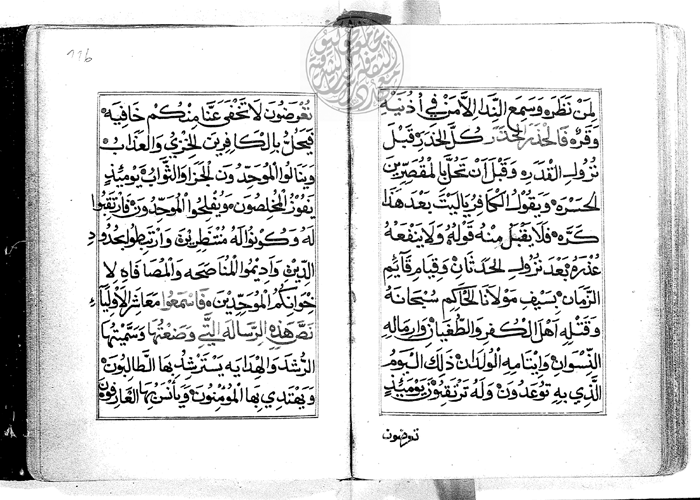 لمن نظره وسمع الندا الا من في أذنيه
وقره فالحذر الحذر كل الحذر قبل
نزول القدره وقبل أن تحل بالمقصرين
الحسره ويقول الكافر ياليت بعد هذا
كره فلا يقبل منه قوله ولا ينفعه
عذره بعد نزول الحدثان وقيام قايم
الزمان بسيف مولانا الحاكم سبحانه
وقتله أهل الكفر والطغيان وارماله
النسوان وايتامه الولدان ذلك اليوم
الذي به توعدون وله ترتقبون يوميذ
تعرضون
116
تعرضون لا تخفى عنا منكم خافيه
فيحل بالكافرين الخزي والعذاب
وينالوا الموحدون الجزا والثواب يوميذ
يفوز المخلصون ويفلحوا الموحدون فارتقبوا
له وكونوا له منتظرين وارتبطوا بحدود
الدين واديموا المناصحه والمصافاه لا
خوانكم الموحدين فاسمعوا معاشر الأولياء
نص هذه الرساله التي وضعتها وسميتها
الرشد والهدايه يسترشد بها الطالبون
ويهتدي بها المؤمنون ويأنس بها العارفون